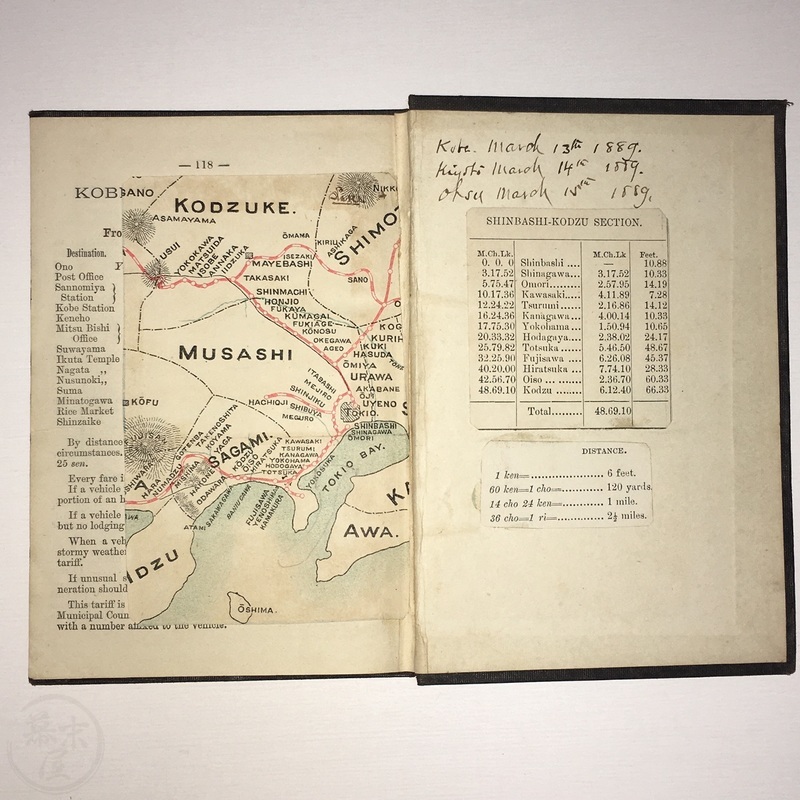 — 118 —
KOB
Fro
Destination.
Ono
Post Office
Sannomiya }
Station }
Kobe Station
Kencho
Mitsu Bishi }
Office }
Suwayama
Ikuta Temple
Nagata „
Nusunoki „
Suma
Minatogawa
Rice Market
Shinzaike
By distance
circumstances.
25 sen.
Every fare i
If a vehicle
portion of an h
If a vehicle
but no lodging
When a veh
stormy weathe
tariff.
If unusual s
neration should
This tariff is
Municipal Coun
with a number affixed to the vehicle.
SANO
KODZUKE.
NIKK
ASAMAYAMA
USUI
YOKOKAWA
MATSUIDA
ISOBE
ANNAKA
IIDZUKA
ŌMAMA
ISEZAKI
KIRIU
ASHIKAGA
SHIMOT
MAYEBASHI
TAKASAKI
SANO
SHINMACHI
HONJIO
FUKAYA
KUMAGAI
FUKIAGE
KŌNOSU
OKEGAWA
AGEO
KOG
KURIH
KUKI
HASUDA
ŌMIYA
URAWA
MUSASHI
ITABASHI
MEJIRO
SHINJIKU
AKABANE
ŌJI
UYENO
TOKIO.
HACHIOJI
SHIBUYA
MEGURO
SHINBASHI
SHINAGAWA
OMORI
KŌFU
FUJISAN
SAGAMI.
TAKENOSHITA
YOYAMA
YAGA
GOTENBA
KŌDZU
OISO
HIRATSUKA
KAWASAKI
TSURUMI
KANAGAWA
YOKOHAMA
HODOGAYA
TOTSUKA
YOKOSUKA
TOKIO BAY.
HARA
NUMADZU
MISHIMA
HAKONE
ODAWARA
ATAMI
FUJISAWA
YENOSHIMA
KAMAKURA
KA
AWA.
IDZU
ŌSHIMA.
Kobe March 13th 1889.
Kiyoto March 14th 1889.
Otsu March 15th 1889.
SHINBASHI-KODZU SECTION.
M.Ch.Lk. M.Ch.Lk Feet.
0. 0. 0 Shinbashi .... — 10.88
3.17.52 Shinagawa... 3.17.52 10.33
5.75.47 Omori.......... 2.57.95 14.19
10.17.36 Kawasaki.... 4.11.89 7.28
12.24.22 Tsurumi...... 2.16.86 14.12
16.24.36 Kanagawa... 4.00.14 10.33
17.75.30 Yokohama... 1.50.94 10.65
20.33.32 Hodagaya.... 2.38.02 24.17
25.79.82 Totsuka ...... 5.46.50 48.67
32.25.90 Fujisawa .... 6.26.08 45.37
40.20.00 Hiratsuka ... 7.74.10 28.33
42.56.70 Oiso ... ....... 2.36.70 60.33
48.69.10 Kodzu ........ 6.12.40 66.33
Total......... 48.69.10
DISTANCE.
1 ken=.................. 6 feet.
60 ken=1 cho=............ 120 yards.
14 cho 24 ken=............ 1 mile.
36 cho=1 ri=.............. 2½ miles.
幕末屋